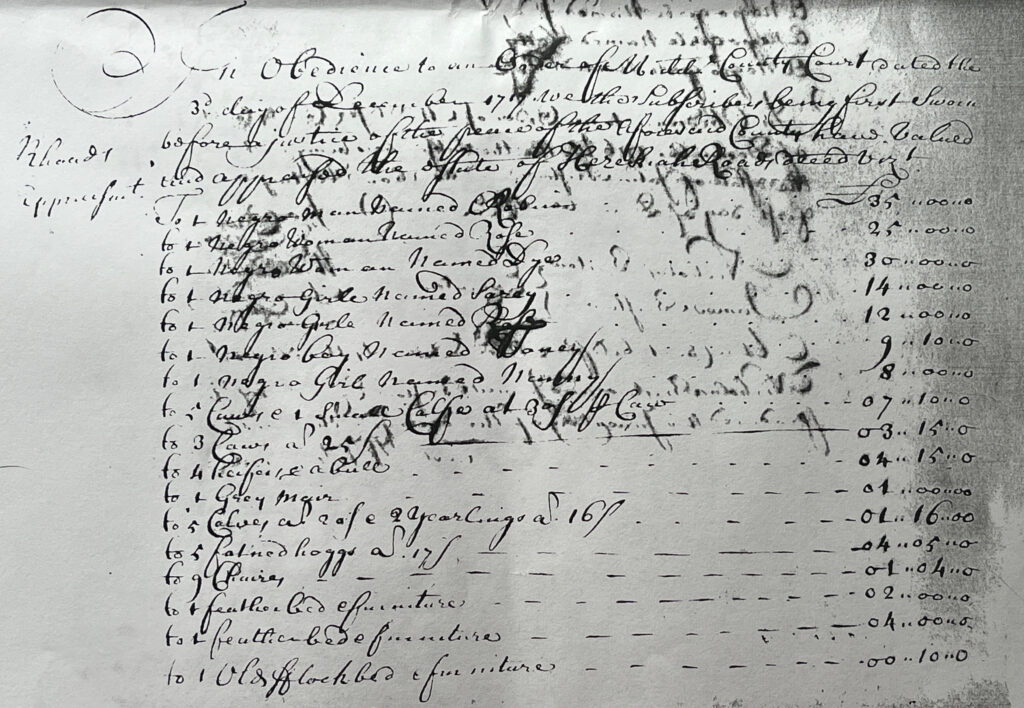 In Obedience to an Order of Midds. County Court dated the
3d day of December 1717 we the Subscribers being first Sworn
before a justice of the peace of the aforesaid County have Valued
and appraised the Estate of Hezekiah Roads deced vizt
Rhoads
appraismt.
To 1 Negro Man Named Robin £35"00"0
to 1 Negro Woman Named Rose 25"00"0
to 1 Negro Woman Named Dye 30"00"0
to 1 Negro Girle Named Sarey 14"00"0
to 1 Negro Girle Named 12"00"0
to 1 Negro boy Named 9"10"0
to 1 Negro Girle Named Nanny 8"00"0
to 5 Caws & 1 Small Calfe at 30s p Caw 07"10"0
to 3 Caws at 25s 03"15"0
to 4 heifers & a bull 04"15"0
to 1 Grey Mair 01"00"00
to 5 Calves at 20s & 2 Yearlings at 16s 01"16"00
to 5 fatned hoggs at 17s 04"05"0
to 9 Chaires 01"04"0
to 1 featherbed & furniture 02"00"0
to 1 featherbed & furniture 04"00"0
to 1 Old fflockbed & furniture 00"10"0